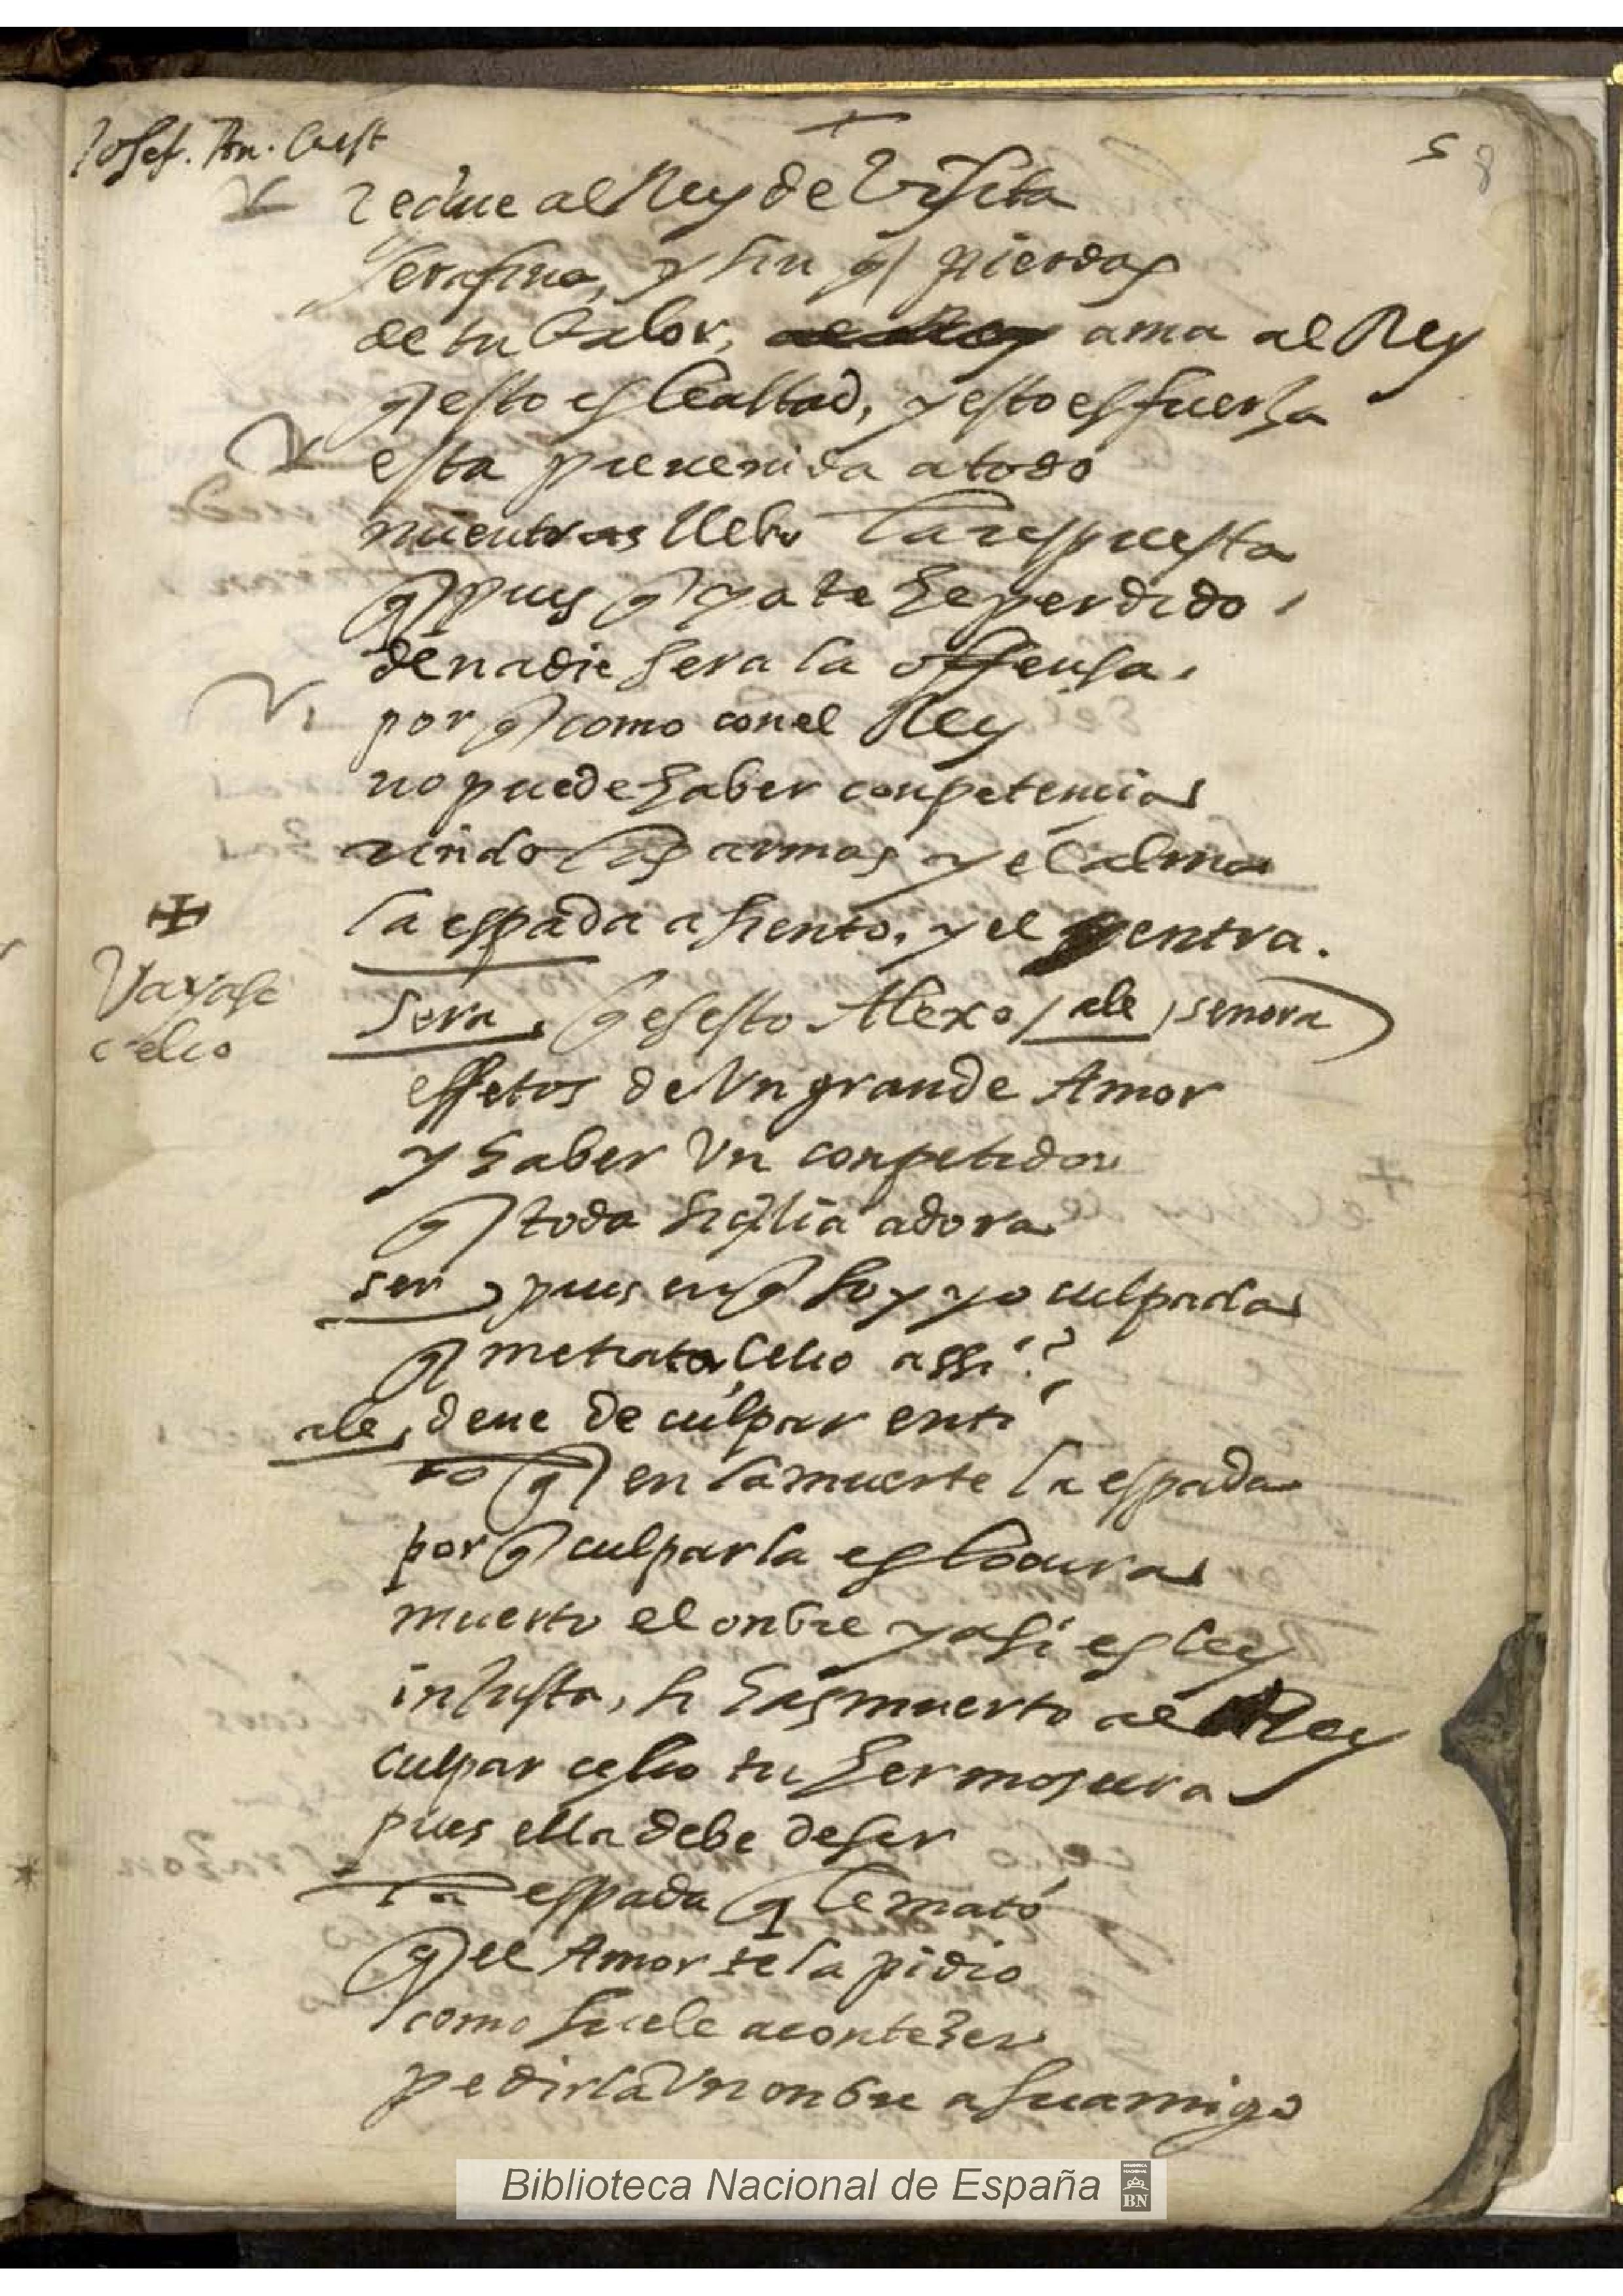 Josef. Preuen. Cuest
5 8
recive al Rey de Visita
serafina, y sin q pierdas
de tu balor, ama al Rey
q esto es lealtad, y esto es fuerza
esta preuenida a todo
mientras llebo la respuesta
q pues q ya te he perdido,
de nadie sera la offensa,
por q como con el Rey
no puede haber conpetencias
rindo las armas y el alma
la espada a siento, y el gentra.
Vayase
celio
sera, q es esto Alexo / ale, senora
effetos de Un grande Amor
y haber Un conpetidor
q toda sizilia adora
ser, pues en q soy yo culpada
q me trata, Celio assi?
ale, deue de culpar en ti
lo q en la muerte la espada
por q culparla es locura
muerto el onbre y asi es ley
injusta, si has muerto al Rey
culpar celio tu hermosura
pues ella debe de ser
la espada q le mató
q el Amor te la pidio
como suele acontezer
pedirla Un onbre a su amigo
Biblioteca Nacional de España
BN